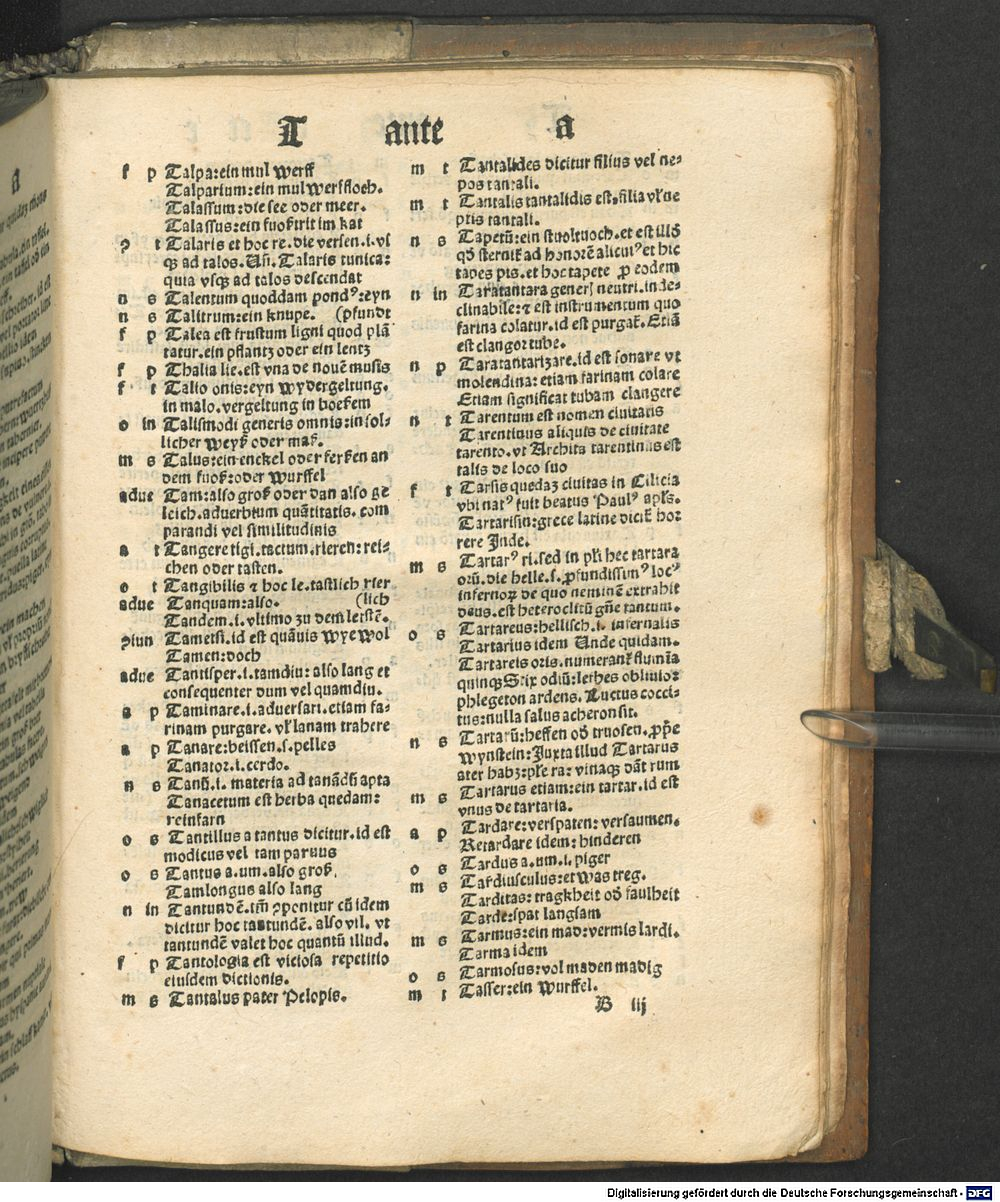 T ante a
f p Talpa:ein mul werff
Talparium:ein mulwerffloch.
Talassum:die see oder meer.
Talassus:ein fuoßtrit im kat
ꝯ t Talaris et hoc re.die versen.i.vſ
qꝫ ad talos.Uñ.Talaris tunica:
quia vſqꝫ ad talos descendat
n s Talentum quoddam pondꝰ:eyn
n s Talitrum:ein knupe. (pfundt
f p Talea est frustum ligni quod plā
tatur.ein pflantz oder ein lentz
f p Thalia lie.est vna de nouē musis
f t Talio onis:eyn wydergeltung.
in malo.vergeltung in boesem
o in Talismodi generis omnis:in sol-
licher weyß oder maß.
m s Talus:ein enckel oder fersen an
dem fuoß:oder wurffel
adue Tam:also groß oder dan also ge
leich.aduerbium quātitatis.com
parandi vel similitudinis
a t Tangere tigi.tactum.rieren:rei-
chen oder tasten.
o t Tangibilis ⁊ hoc le.tastlich rier
adue Tanquam:also. (lich
Tandem.i.vltimo zu dem lersten̄.
ꝯiun Tametsi.id est quāuis wyewol
Tamen:doch
adue Tantisper.i.tamdiu:also lang et
consequenter dum vel quamdiu.
a p Taminare.i.aduersari.etiam fa-
rinam purgare.vl̛ lanam trahere
a p Tanare:beissen.s.pelles
Tanator.i.cerdo.
n s Tanū.i.materia ad tanādū apta
Tanacetum est herba quedam:
reinfarn
o s Tantillus a tantus dicitur.id est
modicus vel tam paruus
o s Tantus a.um.also groß.
Tamlongus also lang
n in Tantundē.tm̄ ꝯponitur cū idem
dicitur hoc tantundē.also vil.vt
tantundē valet hoc quantū illud.
f p Tantologia est viciosa repetitio
eiusdem dictionis.
m s Tantalus pater Pelopis.
m t Tantalides dicitur filius vel ne-
pos tantali.
m t Tantalis tantalidis est.filia vl̛ ne
ptis tantali.
n s Tapetū:ein stuoltuoch.et est illđ
qđ sternit̛ ad honorē alicuiꝰ et hic
tapes pis.et hoc tapete ꝓ eodem
n in Taratantara generꝭ neutri.inde-
clinabile:⁊ est instrumentum quo
farina colatur.id est purgat̛.Etiā
est clangor tube.
n p Taratantarizare.id est sonare vt
molendina:etiam farinam colare
Etiam significat tubam clangere
n t Tarentum est nomen ciuitatis
Tarentinus aliquis de ciuitate
tarento.vt Archita tarentinus est
talis de loco suo
f t Tarsis quedaꝫ ciuitas in Cilicia
vbi natꝰ fuit beatus Paulꝰ apls̄.
Tartarisin:grece latine dicit̛ hor
rere Inde.
m s Tartarꝰ ri.sed in pl̛i hec tartara
orū.die helle.s.ꝓfundissimꝰ locꝰ
infernoꝝ de quo neminē extrahit
deus.est heteroclitū gn̄e tantum.
Tartareus:hellisch.i.infernalis
o s Tartarius idem Unde quidam.
Tartareis oris.numerant̛ flumīa
quinqꝫ Stix odiū:lethes obliuio:
phlegeton ardens.Luctus cocci-
tus:nulla salus acheron sit.
n s Tartarū:heffen ođ truosen.ꝓpe
wynstein:Juxta illud Tartarus
ater habꝫ:pl̛e ra:vinaqꝫ dāt rum
m s Tartarus etiam:ein tartar.id est
vnus de tartaria.
a p Tardare:verspaten:versaumen.
Retardare idem:hinderen
o s Tardus a.um.i.piger
m s Tardiusculus:etwas treg.
Tarditas:tragkheit ođ faulheit
Tarde:spat langsam
m s Tarmus:ein mad:vermis lardi.
Tarma idem
o s Tarmosus:vol maden madig
m t Tasser:ein wurffel.
B iij
Digitalisierung gefördert durch die Deutsche Forschungsgemeinschaft - DFG